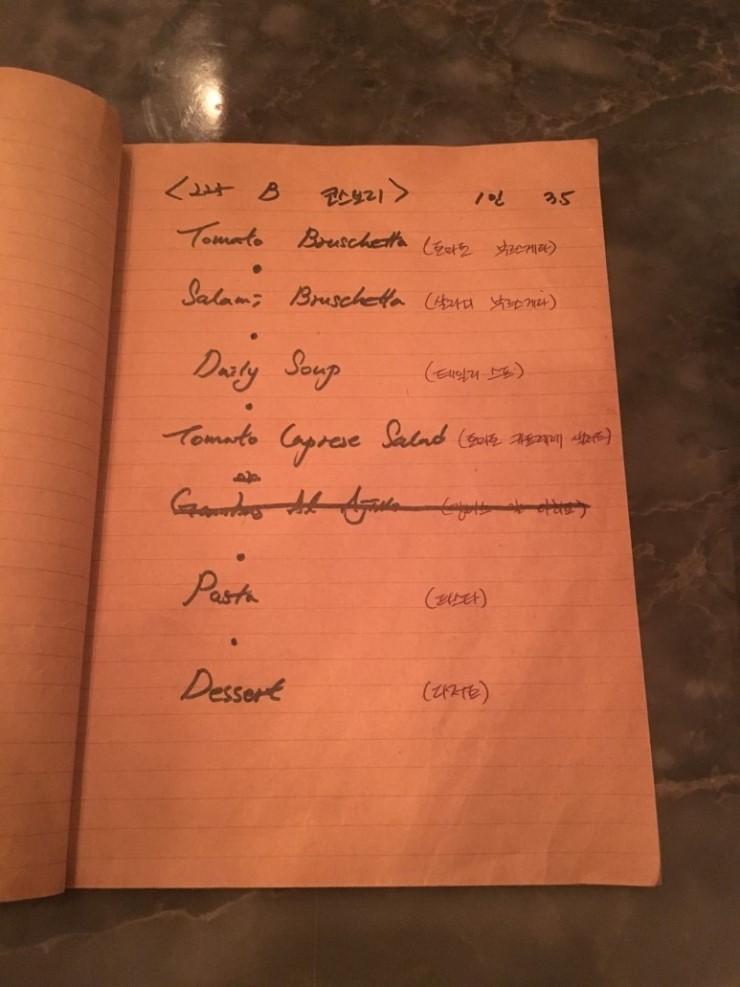 <225 B 코스요리> 1인 35
Tomato Bruschetta (토마토 브루스게타)
Salami Bruschetta (살라미 브루스게타)
Daily Soup (데일리 스프)
Tomato Caprese Salad (토마토 카프레제 샐러드)
or
Gambas Al Ajillo (감바스 알 아히요)
Pasta (파스타)
Dessert (디저트)